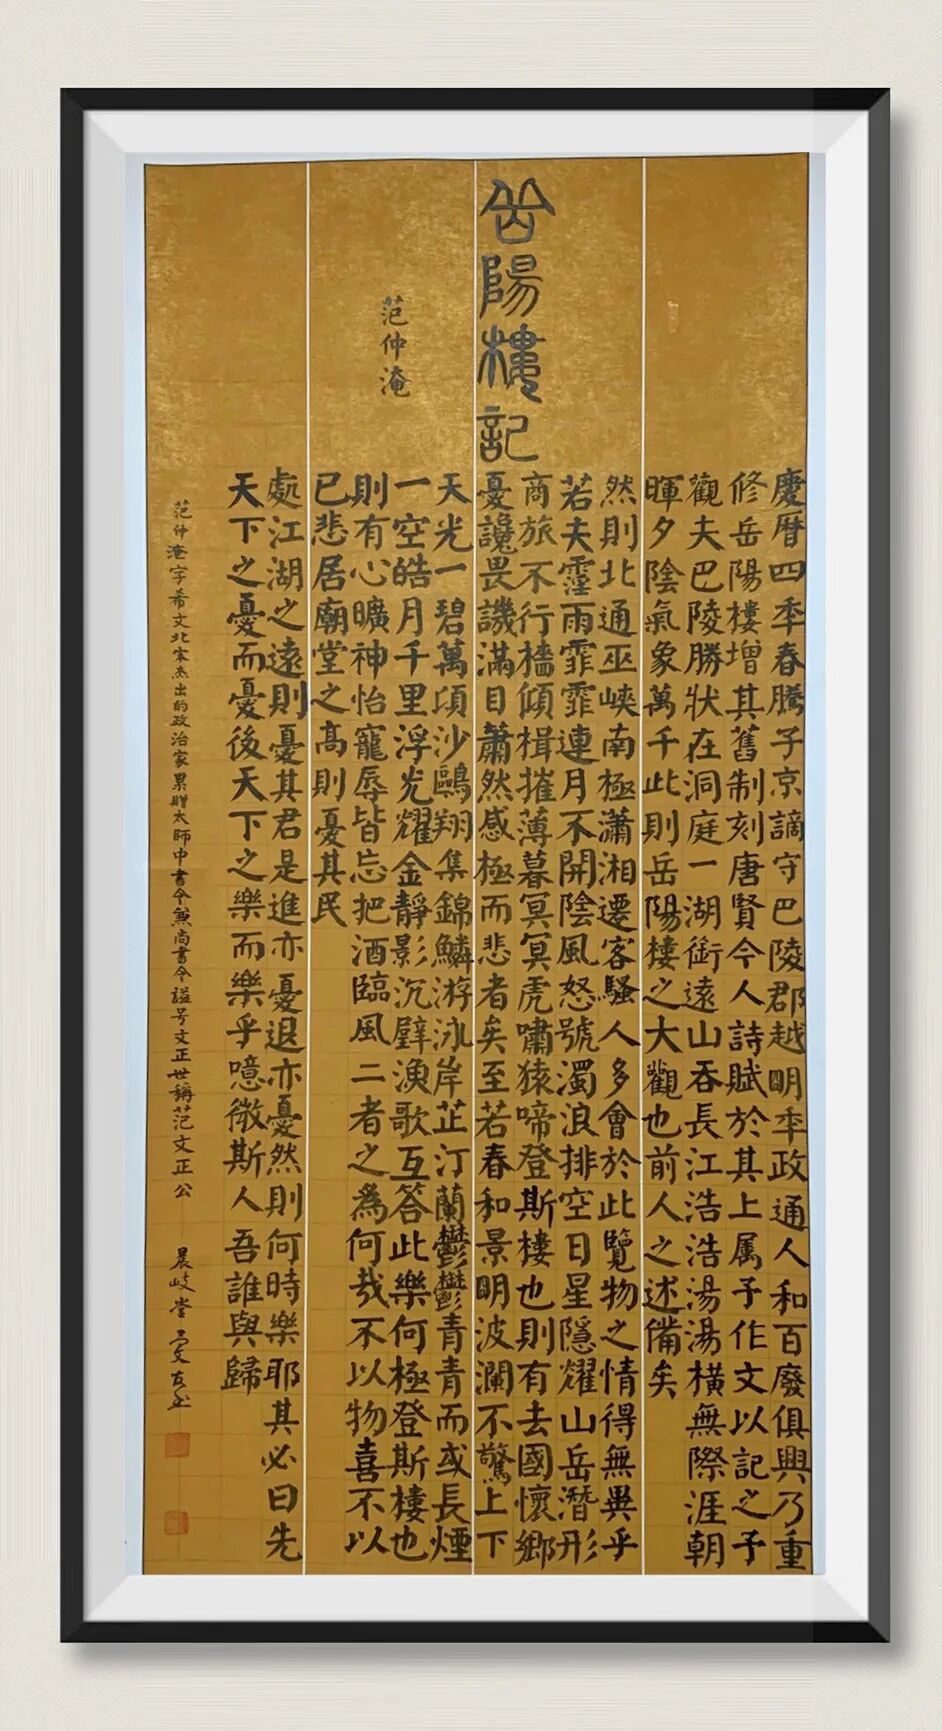 岳陽樓記
范仲淹
慶曆四秊春滕子京謫守巴陵郡越明秊政通人和百廢俱興乃重
修岳陽樓增其舊制刻唐賢今人詩賦於其上属予作文以記之予
觀夫巴陵勝狀在洞庭一湖銜遠山吞長江浩浩湯湯橫無際涯朝
暉夕陰氣象萬千此則岳陽樓之大觀也前人之述備矣
然則北通巫峽南極瀟湘遷客騷人多會於此覽物之情得無異乎
若夫霪雨霏霏連月不開陰風怒號濁浪排空日星隱耀山岳潛形
商旅不行檣傾楫摧薄暮冥冥虎嘯猿啼登斯樓也則有去國懷鄉
憂讒畏譏滿目蕭然感極而悲者矣至若春和景明波瀾不驚上下
天光一碧萬頃沙鷗翔集錦鱗游泳岸芷汀蘭鬱鬱青青而或長煙
一空皓月千里浮光耀金靜影沉璧漁歌互答此樂何極登斯樓也
則有心曠神怡寵辱皆忘把酒臨風二者之為何哉不以物喜不以
已悲居廟堂之高則憂其民
處江湖之遠則憂其君是進亦憂退亦憂然則何時樂耶其必曰先
天下之憂而憂後天下之樂而樂乎噫微斯人吾誰與歸
范仲淹字希文北宋杰出的政治家累贈太師中書令兼尚書令謚号文正世稱范文正公
晨岐堂